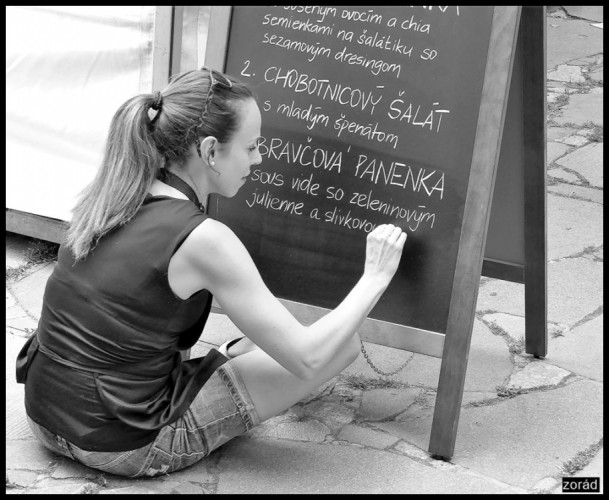 sušeným ovocím a chia
semienkami na šalátiku so
sezamovým dresingom
2. CHOBOTNICOVÝ ŠALÁT
s mladým špenátom
BRAVČOVÁ PANENKA
sous vide so zeleninovým
julienne a slivkovo
zorád